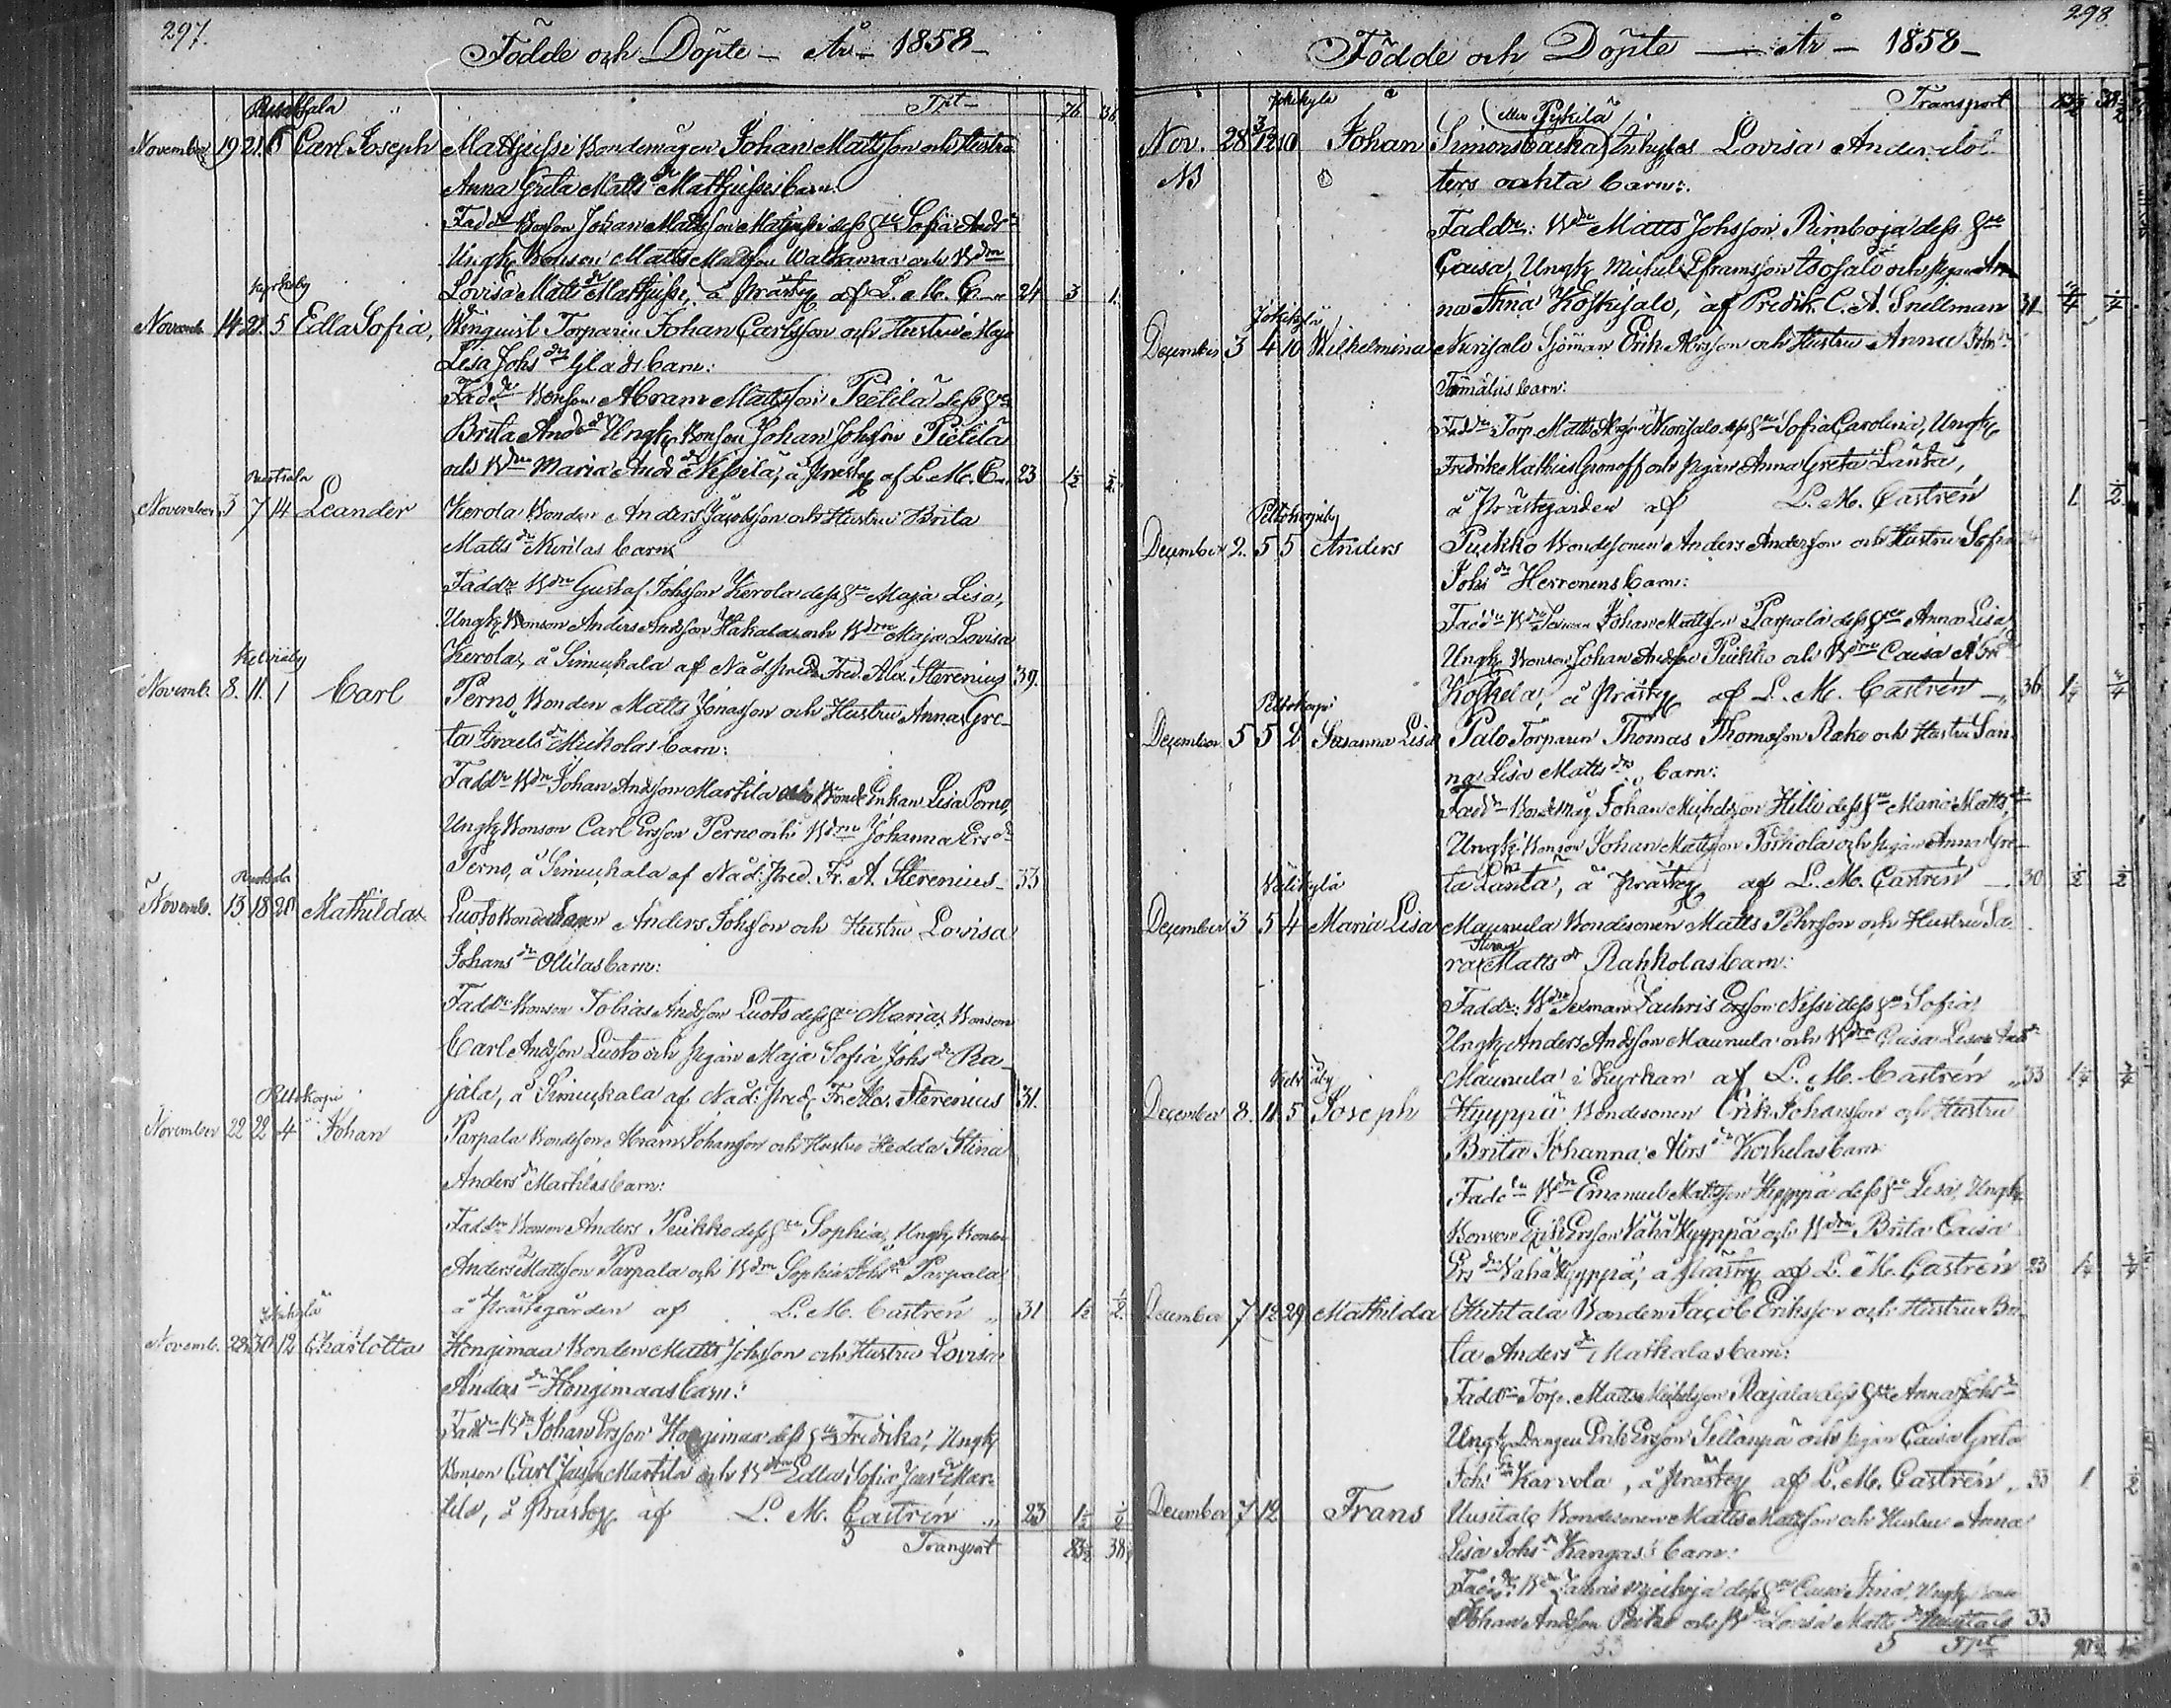 297.
Födde och Döpte - År - 1858 -
Tpt 76
November 19 21 Carl Joseph Mattjussi Bondemågen Johan Mattsson och Hustru
Anna Greta Matts dr Mattjussis barn:
Fadd Bonson Johan Mattsson Mattjussi dess Sofia Ands
Ungk Bonson Matts Mattsson Walkamaa och Bdrn
Lovisa Matts dr Mattjussi, å Prästeg af L. M. C. 24 3 1
Kyrkoby
Novemb. 14 21 5 Edla Sofia, Winquist Torparen Johan Carlsson och Hustru Maja
Lisa Johs dr Glads barn:
Fadd Bonson Abram Mattsson Pietilä dess
Brita And dr Ungk Bonson Johan Johsson Pietilä
och Bdrn Maria Ands dr Nissilä, å Prästeg af L. M. C. 23 1½ ½
November 3 7 14 Leander Kerola Bonden Anders Jacobsson och Hustru Brita
Matts dr Nurilas barn
Fadd Bdn Gustaf Johsson Kerola dess Maja Lisa,
Ungk Bonson Anders Andsson Hakala och Bdrn Maja Lovisa
Kerola, å Simukala af Nåd. Pred Fred. Alex. Sterenius 39.
Kelviåby
Novemb. 8. 11. 1 Carl Perno Bonden Matts Jonasson och Hustru Anna Gre-
ta Israels dr Mickolas barn:
Fadd Bdn Johan Andsson Martila och Bond Enkan Lisa Perno,
Ungk Bonson Carl Ersson Perno och Bdrn Johanna Ers dr
Perno, å Simukala af Nåd. Pred. Fr. A. Sterenius 33
Novemb. 13 18 20 Mathilda Luoto Bonde Anders Johsson och Hustru Lovisa
Johans dr Ollilas barn:
Fadd Bonson Tobias Andsson Luoto dess Maria, Bonson
Carl Andsson Luoto och Pigan Maja Sofia Johs dr Ra-
jala, å Simukala af Nåd. Pred. Fr. Alex. Sterenius 31.
Peltokorpi
November 22 22 4 Johan Parpala Bondeson Abram Johansson och Hustru Hedda Stina
Anders dr Martilas barn:
Fadd Bonson Anders Puikko dess Sophia, Ungk Bonson
Anders Mattsson Parpala och Bdrn Sophia Johs dr Parpala
å Prästegården af L. M. Castrén 31 1½ ½
Jokikylä
Novemb. 28 30 12 Charlotta Hongimaa Bonden Matts Johsson och Hustru Lovisa
Anders dr Hongimaas barn:
Fadd Bdn Johan Ersson Hongimaa dess Fredrika, Ungk
Bonson Carl Martila och Bdrn Edla Sofia Mar-
tila, å Prästeg af L. M. Castrén 23 1½ ½
Transport 83½ 38½
298
Födde och Döpte - År - 1858 -
Jokikyla eller Pykilä Transport
Nov. 28 12 10 Johan Simonsbacka Inhyses Lovisa Andersdot-
NB ters oäkta barn:
Fadd: Bdn Matts Johsson Rimboja dess
Caisa, Ungk Michel Eframsson Isosalo och Pigan An-
na Stina Koskisalo, af Predik. C. A. Snellman 31 ¾ ¼
Jokikylä
December 3 4 10 Wilhelmina Kurisalo Sjöman Erik Abrsson och Hustru Anna
Tamälas barn:
Fadd Torp. Matts Kurisalo dess Sofia Carolina, Ungk
Fredrik Mathias Gronoff och Pigan Anna Greta Lanta,
å Prästegården af L. M. Castrén 1 ½
Peltokorpiby
December 2. 5 5 Anders Puikko Bondesonen Anders Andersson och Hustru Sofia
Johs dr Herronens barn:
Fadd Johan Mattsson Parpala dess Anna Lisa,
Ungk Bonson Johan Andsson Puikko och Bdrn Caisa Abr
Koskela, å Prästeg af L. M. Castrén 36 1¼ ¾
Peltokorpi
December 5 5 2 Susanna Lisa Palo Torparen Thomas Thomsson Rako och Hustru San-
na Lisa Matts dr barn:
Fadd Bondmåg Johan Michelsson Hilli dess Maria Matts,
Ungk Bonson Johan Mattsson Torkola och Pigan Anna Gre-
ta Lanta, å Prästeg af L. M. Castrén 30 ½ ½
Välikylä
December 3 5 4 Maria Lisa Maunula Bondesonen Matts Pehrsson och Hustru Sa-
ra Stina Matts dr Rahkolas barn:
Fadd: Zachris Ersson Nissi dess Sofia,
Ungk Anders Andsson Maunula och Bdrn Caisa Lisa Ands
Maunula i Kyrkan af L. M. Castrén 33 1¼ ¾
December 8. 11 5 Joseph Hyyppä Bondesonen Erik Johansson och Hustru
Brita Johanna Abrs dr Korkelas barn
Fadd Bdn Emanuel Mattsson Hyyppä dess Lisa, Ungk
Bonson Erik Ersson Vähä Hyyppä och Bdrn Brita Caisa
Ers dr Vähä Hyyppä, å Prästeg af L. M. Castrén 23 1¼ ¾
December 7 12 29 Mathilda Huhtala Bonden Jacob Eriksson och Hustru Bri-
ta Anders dr Matkalas barn:
Fadd Torp. Matts Michelsson Rajala dess Anna Johs
Ungk Drengen Erik Ersson Sillanpä och Pigan Caisa Greta
Johs dr Karvola, å Prästeg af L. M. Castrén 33 1 ½
December 7 12 Frans Uusitalo Bondesonen Matts Mattsson och Hustru Anna
Lisa Johs dr Kangas's barn:
Fadd: dess Caisa Stina, Ungk
Johan Andsson och Lovisa Matts 33
5 Tpt